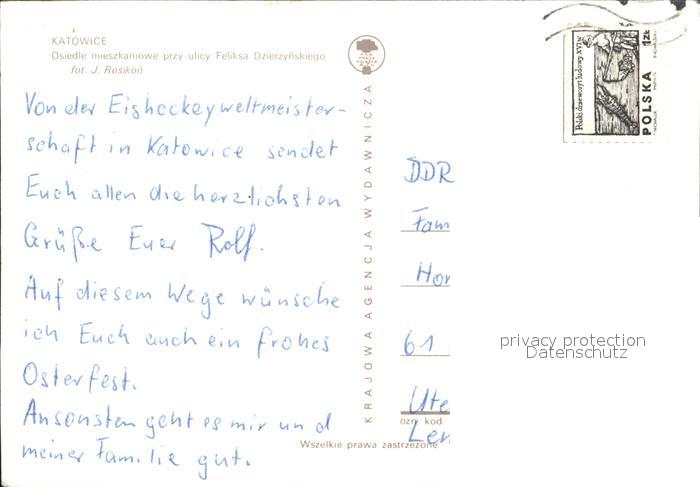 KATOWICE
Osiedle mieszkaniowe przy ulicy Feliksa Dzierzyńskiego
fot. J. Rosikoń
Von der Eishockeyweltmeister-
schaft in Katowice sendet
Euch allen die herzlichsten
Grüße Euer Rolf.
Auf diesem Wege wünsche
ich Euch auch ein frohes
Osterfest.
Ansonsten geht es mir und
meiner Familie gut.
KRAJOWA AGENCJA WYDAWNICZA
Polski drzeworyt ludowy XVI w.
POLSKA 1zł
DDR
Fam
Hor
61
Ute
ozn. kod.
Len
Wszelkie prawa zastrzeżone
privacy protection
Datenschutz